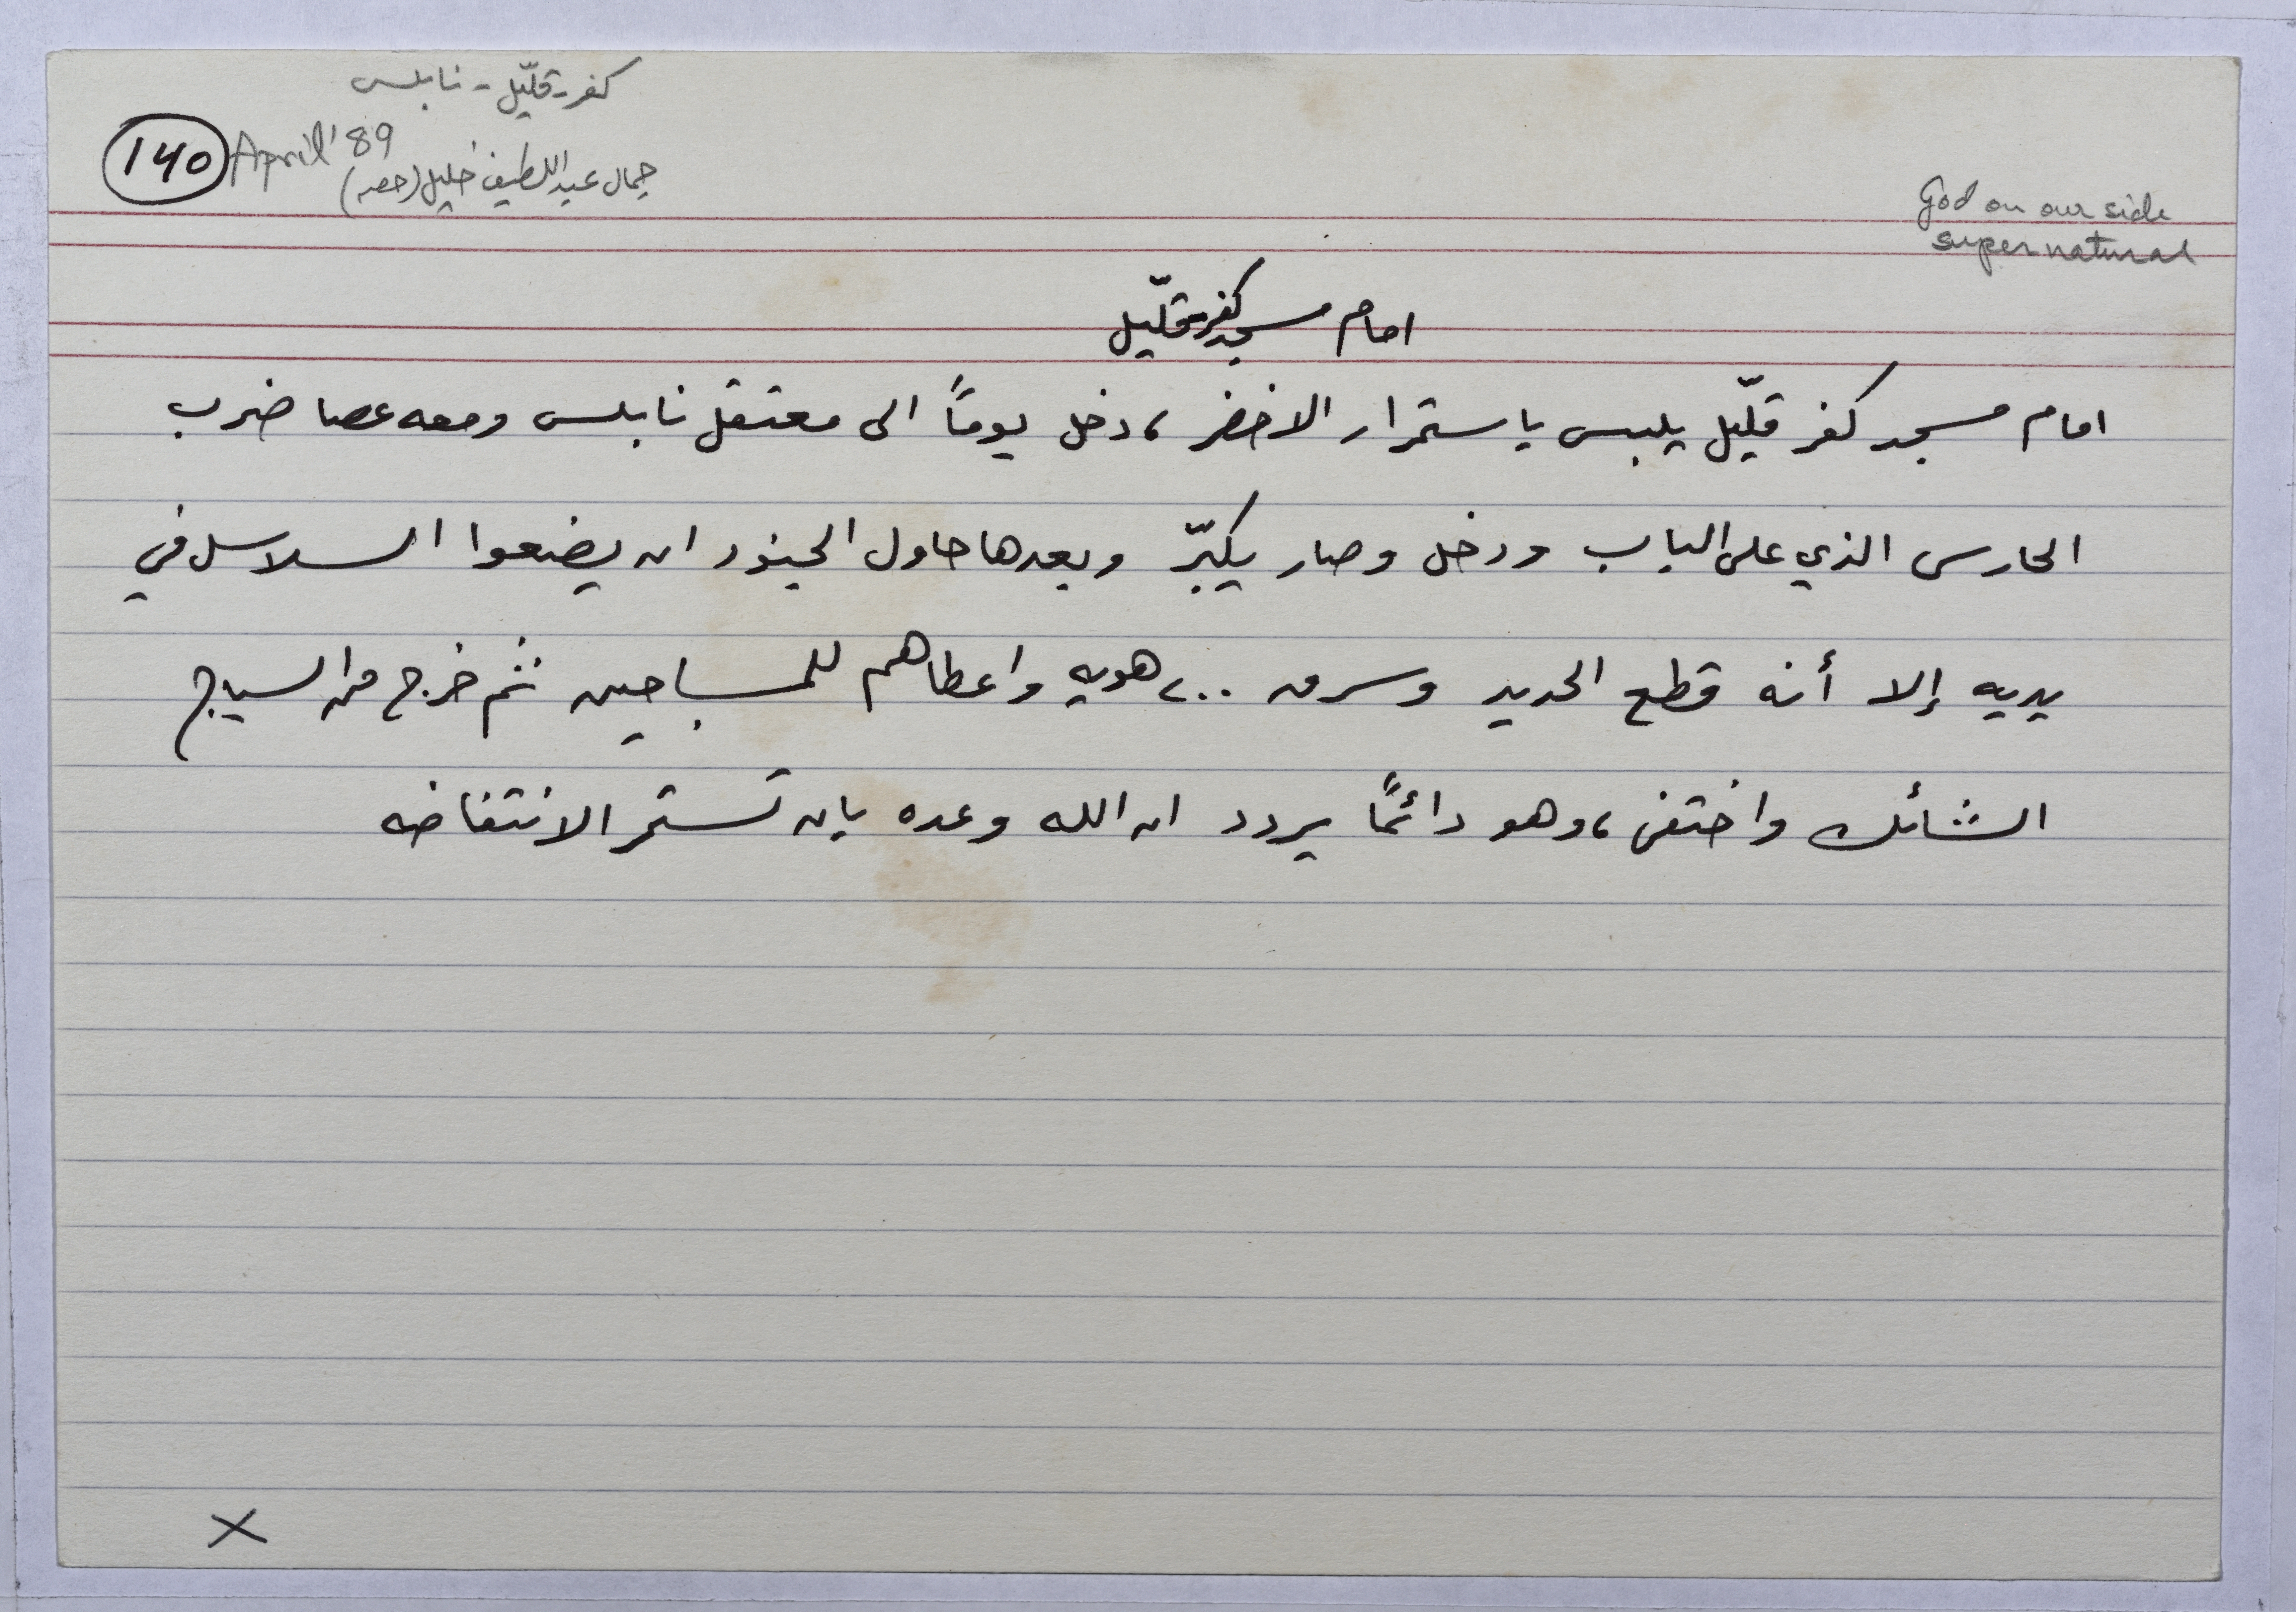 كفر قلّيل - نابلس
140 April '89
جمال عبد اللطيف خليل
God on our side
supernatural
امام مسجد كفر قلّيل
امام مسجد كفر قلّيل يلبس باستمرار الاخضر، دخل يوماً الى معتقل نابلس ومعه عصا ضرب
الحارس الذي على الباب ودخل وصار يكبّر وبعدها حاول الجنود ان يضعوا السلاسل في
يديه إلا أنه قطع الحديد وسرق ٢٠٠ هويه واعطاهم للمساجين ثم خرج من السياج
الشائك واختفى، وهو دائماً يردد ان الله وعده بان تستمر الانتفاضه
X